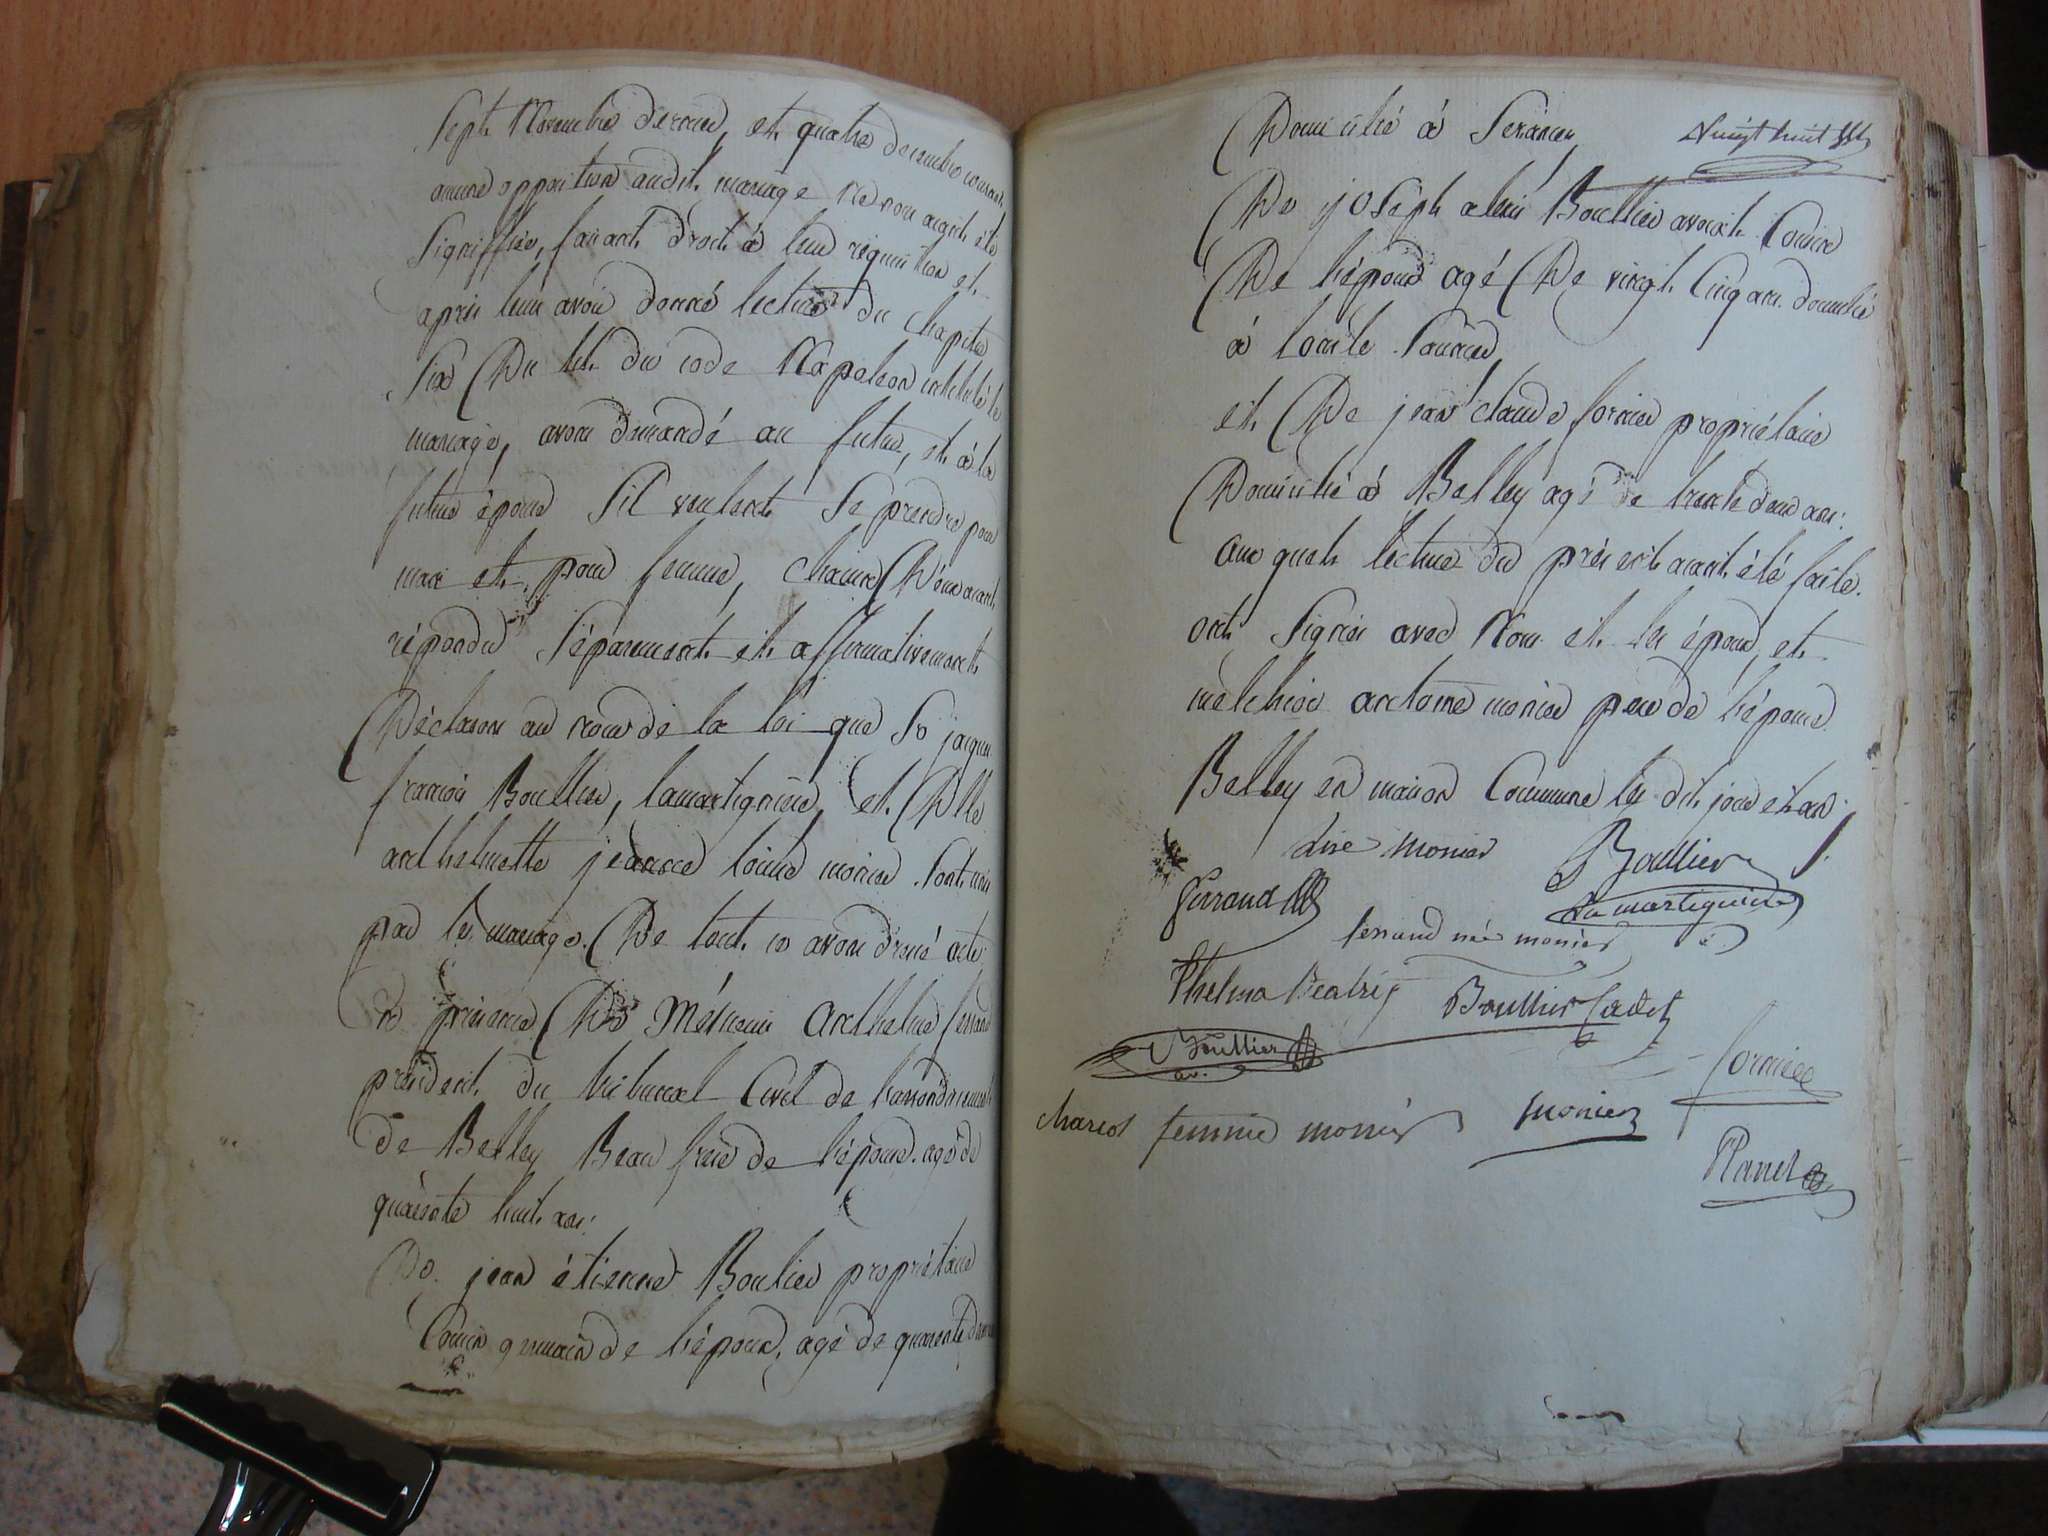 Sept Novembre dernier, et quatre decembre courant
aucune opposition audit mariage ne nous ayant été
Signiffiée, faisant droit à leur réquisition et
après leur avoir donné lecture du chapitre
Six Du tit. du code Napoleon intitulé le
mariage, avons demandé au futur, et à la
future épouse S'il veulent Se prendre pour
mari et pour femme, chacun D'eux ayant
répondu Séparement et affirmativement
Déclarons au nom de la loi que Sr jacques
françois Boullier, lamartiginiere, et Dlle
anthelmette jeanne louise monier Sont unis
par le mariage. De tout ce avons dressé acte
en présence De Messieurs Anthelme ferrand
président du tribunal Civil de l'arrondissement
de Belley Beau frere de l'épouse agé de
quarante huit ans.
De jean étienne Boulier propriétaire
Cousin germain de l'époux, agé de quarante deux ans
Vingt huit
Domicilié à
De joseph aloïs Boullier avocat Cousin
De l'époux agé De vingt Cinq ans domicilié
à
et De jean claude fornier propriétaire
Domicilié à Belley agé de trente deux ans.
aux quels lecture du présent ayant été faite.
ont Signés avec Nous et les époux, et
melchior antoine monier pere de l'épouse
Belley en maison Commune les dit jour et an
lise monier Boullier
ferrand La martiginiere
ferrand née monier
Thelma Béatrix Boullier Cadet
Boullier av. fornier
charcot femme monier monier
Planet